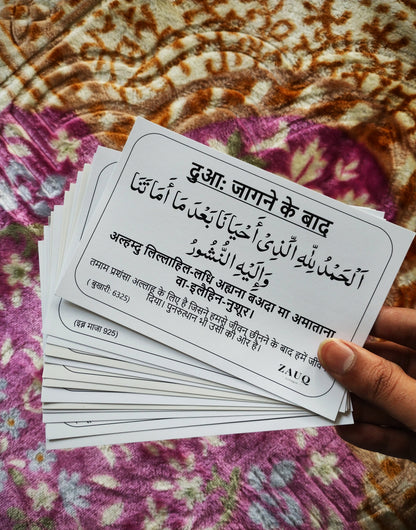 दुआ: जागने के बाद
اَلْحَمْدُ لِلّٰهِ الَّذِیْ أَحْيَانَا بَعْدَ مَا أَمَاتَنَا
وَإِلَيْهِ النُّشُوْرُ
अल्हम्दु लिल्लाहिल-लधि अह्याना बअदा मा अमाताना
वा-इलैहिन-नुशूर।
तमाम प्रशंसा अल्लाह के लिए है जिसने हमसे जीवन छीनने के बाद हमें जीवन
दिया। पुनरुत्थान भी उसी की ओर है।
( बुखारी: 6325)
ZAUQ
(इब्न माजा 925)